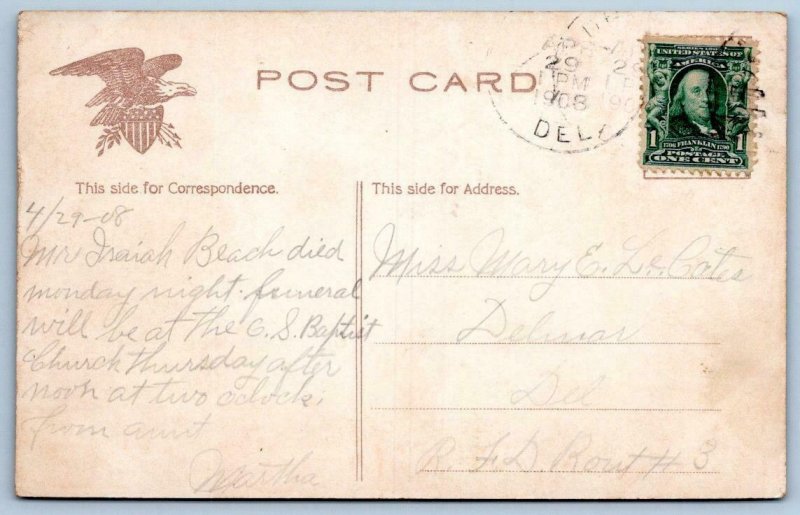 POST CARD
APR
29
1 PM
1908
DEL
SERIES 1902
UNITED STATES OF
AMERICA
1 1
1706 FRANKLIN 1790
POSTAGE
ONE CENT
This side for Correspondence.
This side for Address.
4/29-08
Mr Isaiah Beach died
monday night. funeral
will be at the O.S. Baptist
Church thursday after
noon at two oclock,
from aunt
Martha
Miss Mary E. Le Cates
Delmar
Del
R F D. Rout # 3